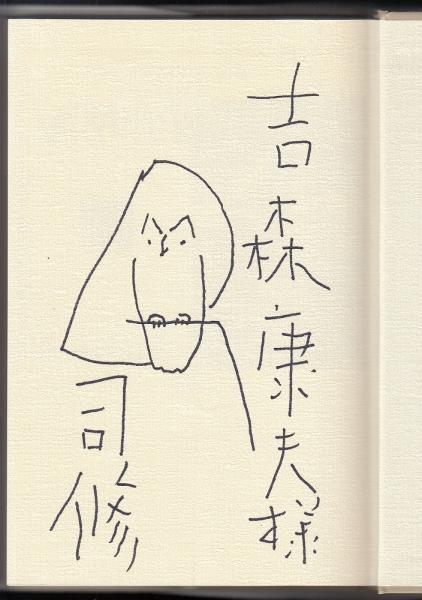 吉森康夫様
司修